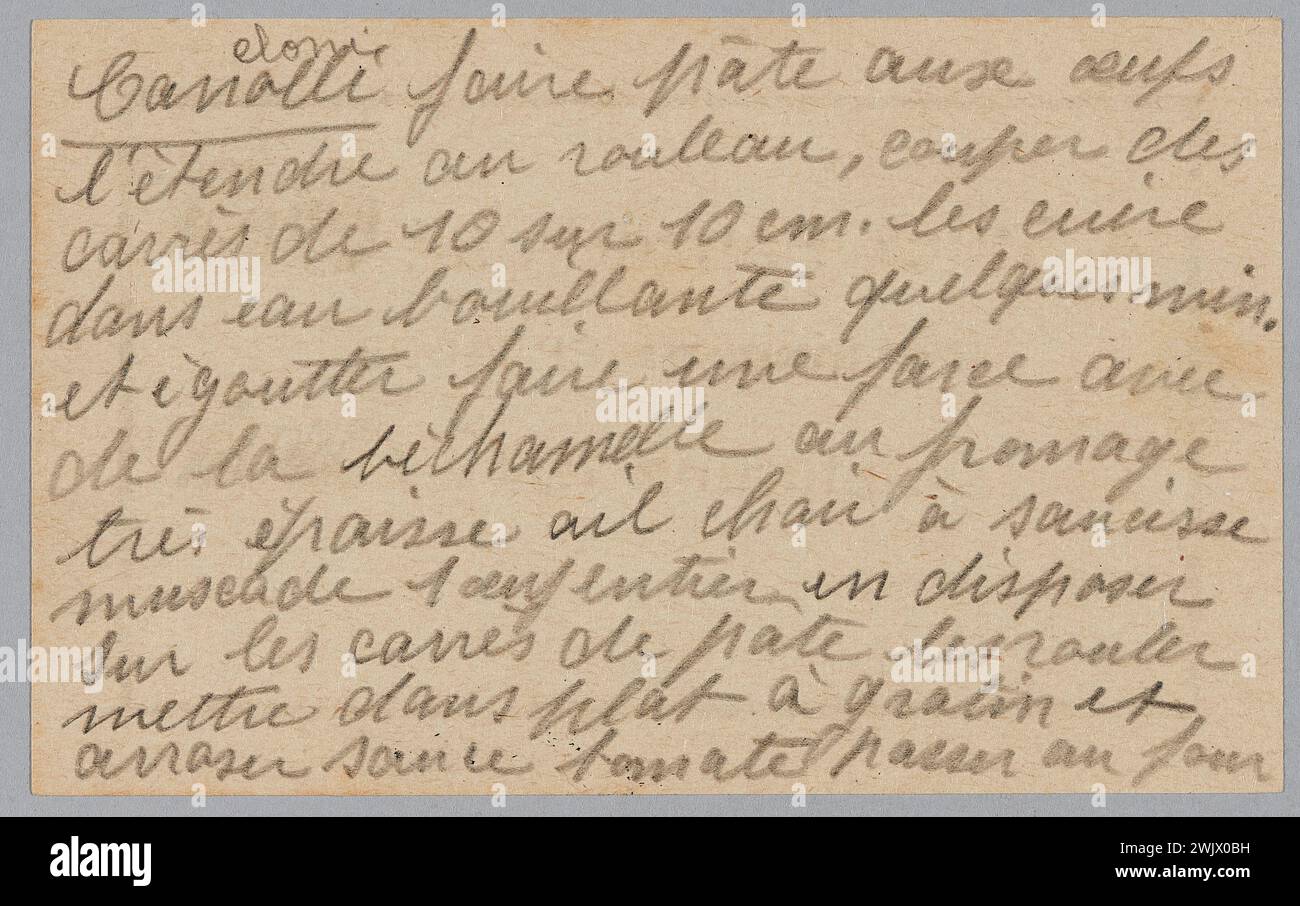 Canolli faire pâte aux œufs
l'étendre au rouleau, couper des
carrés de 10 sur 10 cm. les cuire
dans eau bouillante quelques min.
et égoutter faire une farce avec
de la béchamelle au fromage
très épaisse ail chair à saucisse
muscade 1 œuf entier en disposer
sur les carrés de pâte les rouler
mettre dans plat à gratin et
arroser sauce tomate passer au four
alamy
Image ID: 2WJX0BH
www.alamy.com